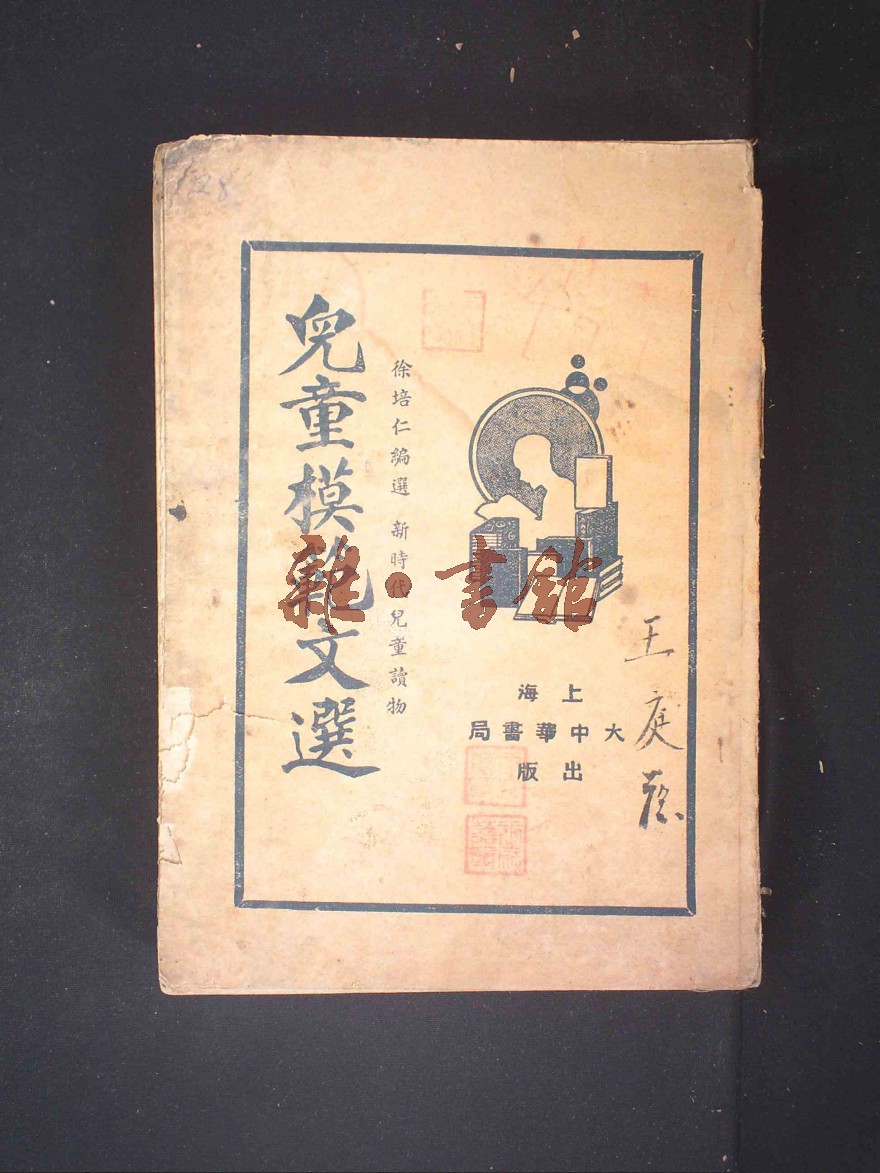 兒童模範文選
徐培仁編選 新時代兒童讀物
上海
大中華書局
出版
王庭
雜·書館